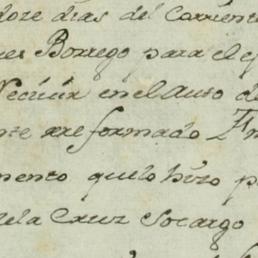 dose dias del Corriente
Borrego para el
en el Auto de
formado
mento quelo hizo p
dela Cruz Socargo